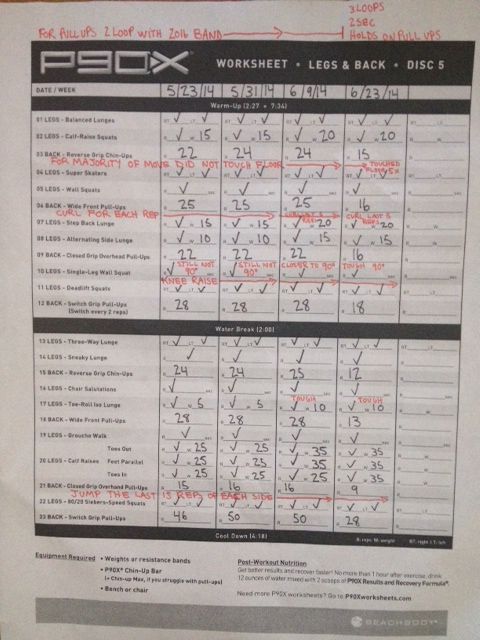 3 LOOPS
2 SEC
FOR PULL UPS 2 LOOP WITH 20lb BAND HOLDS ON PULL UPS
P90X WORKSHEET • LEGS & BACK • DISC 5
DATE / WEEK 5/23/14 5/31/14 6/9/14 6/23/14
Warm-Up (2:27 + 7:34)
01 LEGS - Balanced Lunges RT ✓ LT ✓ RT ✓ LT ✓ RT ✓ LT ✓ RT ✓ LT ✓
02 LEGS - Calf-Raise Squats R ✓ W 15 R ✓ W 15 R ✓ W 20 R ✓ W 20
03 BACK - Reverse Grip Chin-Ups 22 24 24 15
FOR MAJORITY OF MOVE DID NOT TOUCH FLOOR TOUCHED
FLOOR 5X
04 LEGS - Super Skaters RT ✓ LT ✓ RT ✓ LT ✓ RT ✓ LT ✓ RT ✓ LT ✓
05 LEGS - Wall Squats ✓ ✓ ✓ ✓
06 BACK - Wide Front Pull-Ups 25 25 25 16
CURL FOR EACH REP CURL LAST 5 REPS CURL LAST 5 REPS
07 LEGS - Step Back Lunge R ✓ W 15 R ✓ W 15 R ✓ W 20 R ✓ W 20
08 LEGS - Alternating Side Lunge R ✓ W 10 R ✓ W 10 R ✓ W 15 R ✓ W 15
09 BACK - Closed Grip Overhand Pull-Ups 22 22 22 16
10 LEGS - Single-Leg Wall Squat STILL NOT 90° STILL NOT 90° CLOSER TO 90° TOUGH 90°
KNEE RAISE
11 LEGS - Deadlift Squats RT ✓ LT ✓ RT ✓ LT ✓ RT ✓ LT ✓ RT ✓ LT ✓
12 BACK - Switch Grip Pull-Ups 28 28 28 18
(Switch every 2 reps)
Water Break (2:00)
13 LEGS - Three-Way Lunge RT ✓ LT ✓ RT ✓ LT ✓ RT ✓ LT ✓ RT ✓ LT ✓
14 LEGS - Sneaky Lunge ✓ ✓ ✓ ✓
15 BACK - Reverse Grip Chin-Ups 24 24 25 12
16 LEGS - Chair Salutations ✓ ✓ ✓ ✓
TOUGH TOUGH
17 LEGS - Toe-Roll Iso Lunge R ✓ W 5 R ✓ W 5 R ✓ W 10 R ✓ W 10
18 BACK - Wide Front Pull-Ups 28 28 28 13
19 LEGS - Groucho Walk ✓ ✓ ✓ ✓
Toes Out ✓ W 25 ✓ W 25 ✓ W 35 ✓ W 35
20 LEGS - Calf Raises Feet Parallel ✓ W 25 ✓ W 25 ✓ W 35 ✓ W 35
Toes In ✓ W 25 ✓ W 25 ✓ W 35 ✓ W 35
21 BACK - Closed Grip Overhand Pull-Ups 15 16 16 9
JUMP THE LAST 15 REPS OF EACH SIDE
22 LEGS - 80/20 Siebers-Speed Squats RT ✓ LT ✓ RT ✓ LT ✓ RT ✓ LT ✓ RT ✓ LT ✓
23 BACK - Switch Grip Pull-Ups 46 50 50 28
Cool Down (4:18) R: reps W: weight RT: right / LT: left
Equipment Required • Weights or resistance bands
• P90X® Chin-Up Bar
(+ Chin-Up Max, if you struggle with pull-ups)
• Bench or chair
Post-Workout Nutrition
Get better results and recover faster! No more than 1 hour after exercise, drink
12 ounces of water mixed with 2 scoops of P90X Results and Recovery Formula®.
Need more P90X worksheets? Go to P90Xworksheets.com
BEACHBODY